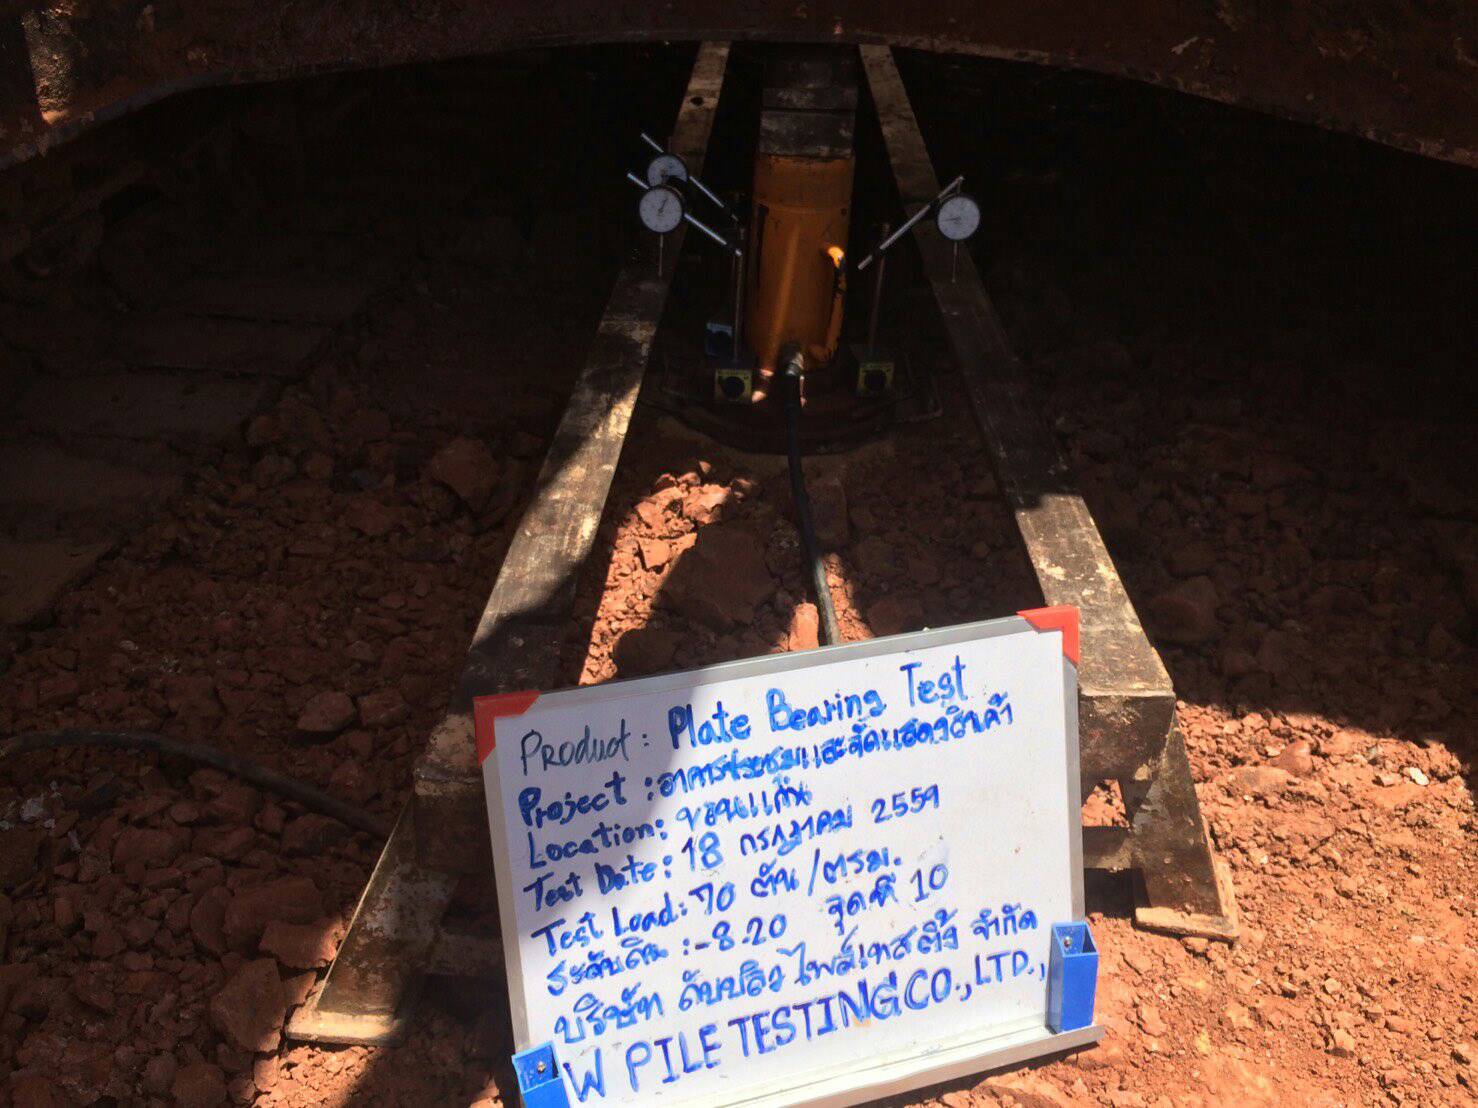 Product: Plate Bearing Test
Project: อาคารประชุมและจัดแสดงสินค้า
Location: ขอนแก่น
Test Date: 18 กรกฎาคม 2559
Test Load: 70 ตัน/ตรม.
ระดับดิน: -8.20 จุดที่ 10
บริษัท ดับบลิว ไพล์เทสติ้ง จำกัด
W PILE TESTING CO., LTD.,